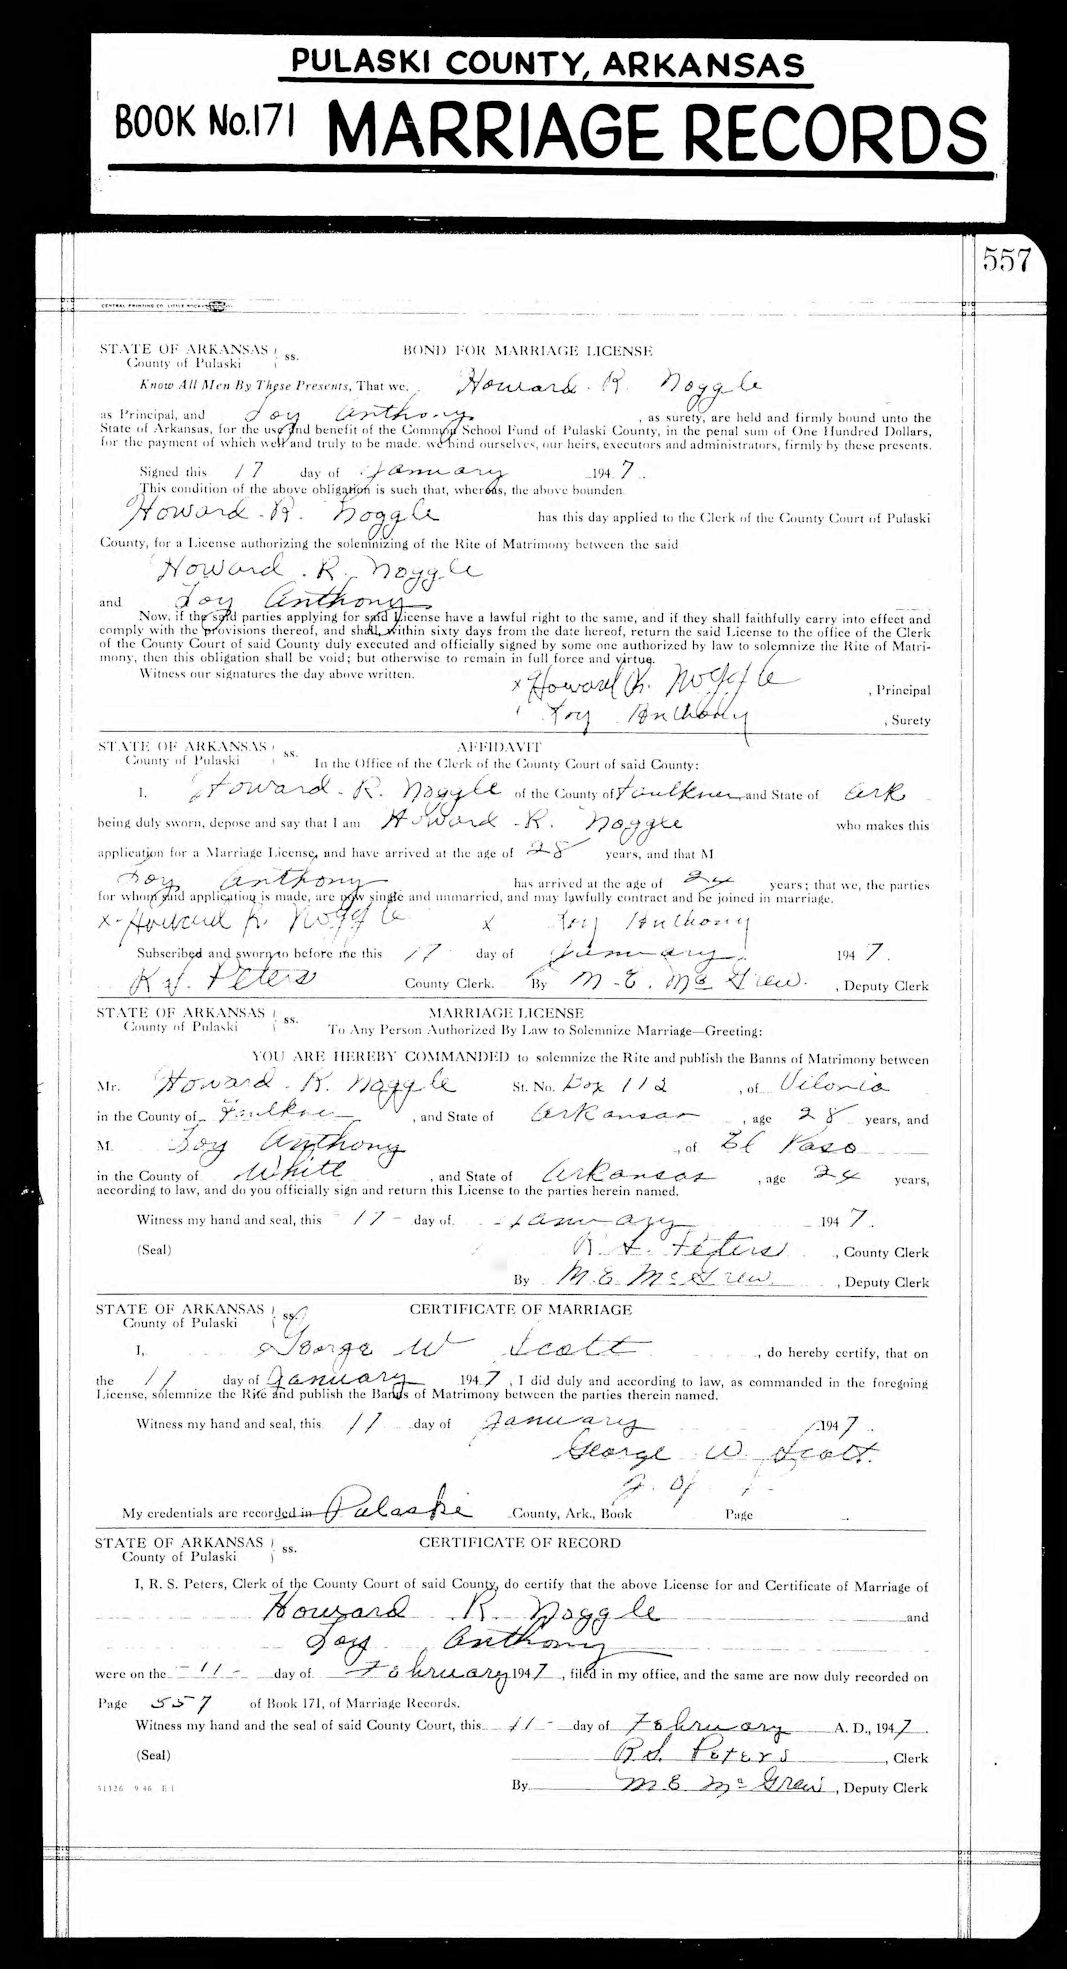 PULASKI COUNTY, ARKANSAS
BOOK No.171 MARRIAGE RECORDS
557
CENTRAL PRINTING CO. LITTLE ROCK
STATE OF ARKANSAS
County of Pulaski ss. BOND FOR MARRIAGE LICENSE
Know All Men By These Presents, That we, Howard R. Noggle
as Principal, and Loy Anthony, as surety, are held and firmly bound unto the
State of Arkansas, for the use and benefit of the Common School Fund of Pulaski County, in the penal sum of One Hundred Dollars,
for the payment of which well and truly to be made, we bind ourselves, our heirs, executors and administrators, firmly by these presents.
Signed this 17 day of January 1947.
This condition of the above obligation is such that, whereas, the above bounden
Howard R. Noggle has this day applied to the Clerk of the County Court of Pulaski
County, for a License authorizing the solemnizing of the Rite of Matrimony between the said
Howard R. Noggle
and Loy Anthony
Now, if the said parties applying for said License have a lawful right to the same, and if they shall faithfully carry into effect and
comply with the provisions thereof, and shall, within sixty days from the date hereof, return the said License to the office of the Clerk
of the County Court of said County duly executed and officially signed by some one authorized by law to solemnize the Rite of Matri-
mony, then this obligation shall be void; but otherwise to remain in full force and virtue.
Witness our signatures the day above written.
x Howard R. Noggle, Principal
Loy Anthony, Surety
STATE OF ARKANSAS
County of Pulaski ss. AFFIDAVIT
In the Office of the Clerk of the County Court of said County:
I, Howard R. Noggle of the County of Faulkner and State of Ark
being duly sworn, depose and say that I am Howard R. Noggle who makes this
application for a Marriage License, and have arrived at the age of 28 years, and that M
Loy Anthony has arrived at the age of 24 years; that we, the parties
for whom said application is made, are now single and unmarried, and may lawfully contract and be joined in marriage.
x Howard R. Noggle x Loy Anthony
Subscribed and sworn to before me this 17 day of January 1947.
R S. Peters County Clerk. By M. E. McGrew, Deputy Clerk
STATE OF ARKANSAS
County of Pulaski ss. MARRIAGE LICENSE
To Any Person Authorized By Law to Solemnize Marriage—Greeting:
YOU ARE HEREBY COMMANDED to solemnize the Rite and publish the Banns of Matrimony between
Mr. Howard R. Noggle St. No. Box 112, of Vilonia
in the County of Faulkner, and State of Arkansas, age 28 years, and
M Loy Anthony, of El Paso
in the County of White, and State of Arkansas, age 24 years,
according to law, and do you officially sign and return this License to the parties herein named.
Witness my hand and seal, this 17 day of January 1947.
(Seal) R. S. Peters, County Clerk
By M. E. McGrew, Deputy Clerk
STATE OF ARKANSAS
County of Pulaski ss. CERTIFICATE OF MARRIAGE
I, George W Scott, do hereby certify, that on
the 17 day of January 1947, I did duly and according to law, as commanded in the foregoing
License, solemnize the Rite and publish the Banns of Matrimony between the parties therein named.
Witness my hand and seal, this 17 day of January 1947.
George W. Scott.
J. of P.
My credentials are recorded in Pulaski County, Ark., Book Page
STATE OF ARKANSAS
County of Pulaski ss. CERTIFICATE OF RECORD
I, R. S. Peters, Clerk of the County Court of said County, do certify that the above License for and Certificate of Marriage of
Howard R. Noggle and
Loy Anthony
were on the 11 day of February 1947, filed in my office, and the same are now duly recorded on
Page 557 of Book 171, of Marriage Records.
Witness my hand and the seal of said County Court, this 11 day of February A. D., 1947.
(Seal) R. S. Peters, Clerk
51326 9-46 E I By M E McGrew, Deputy Clerk